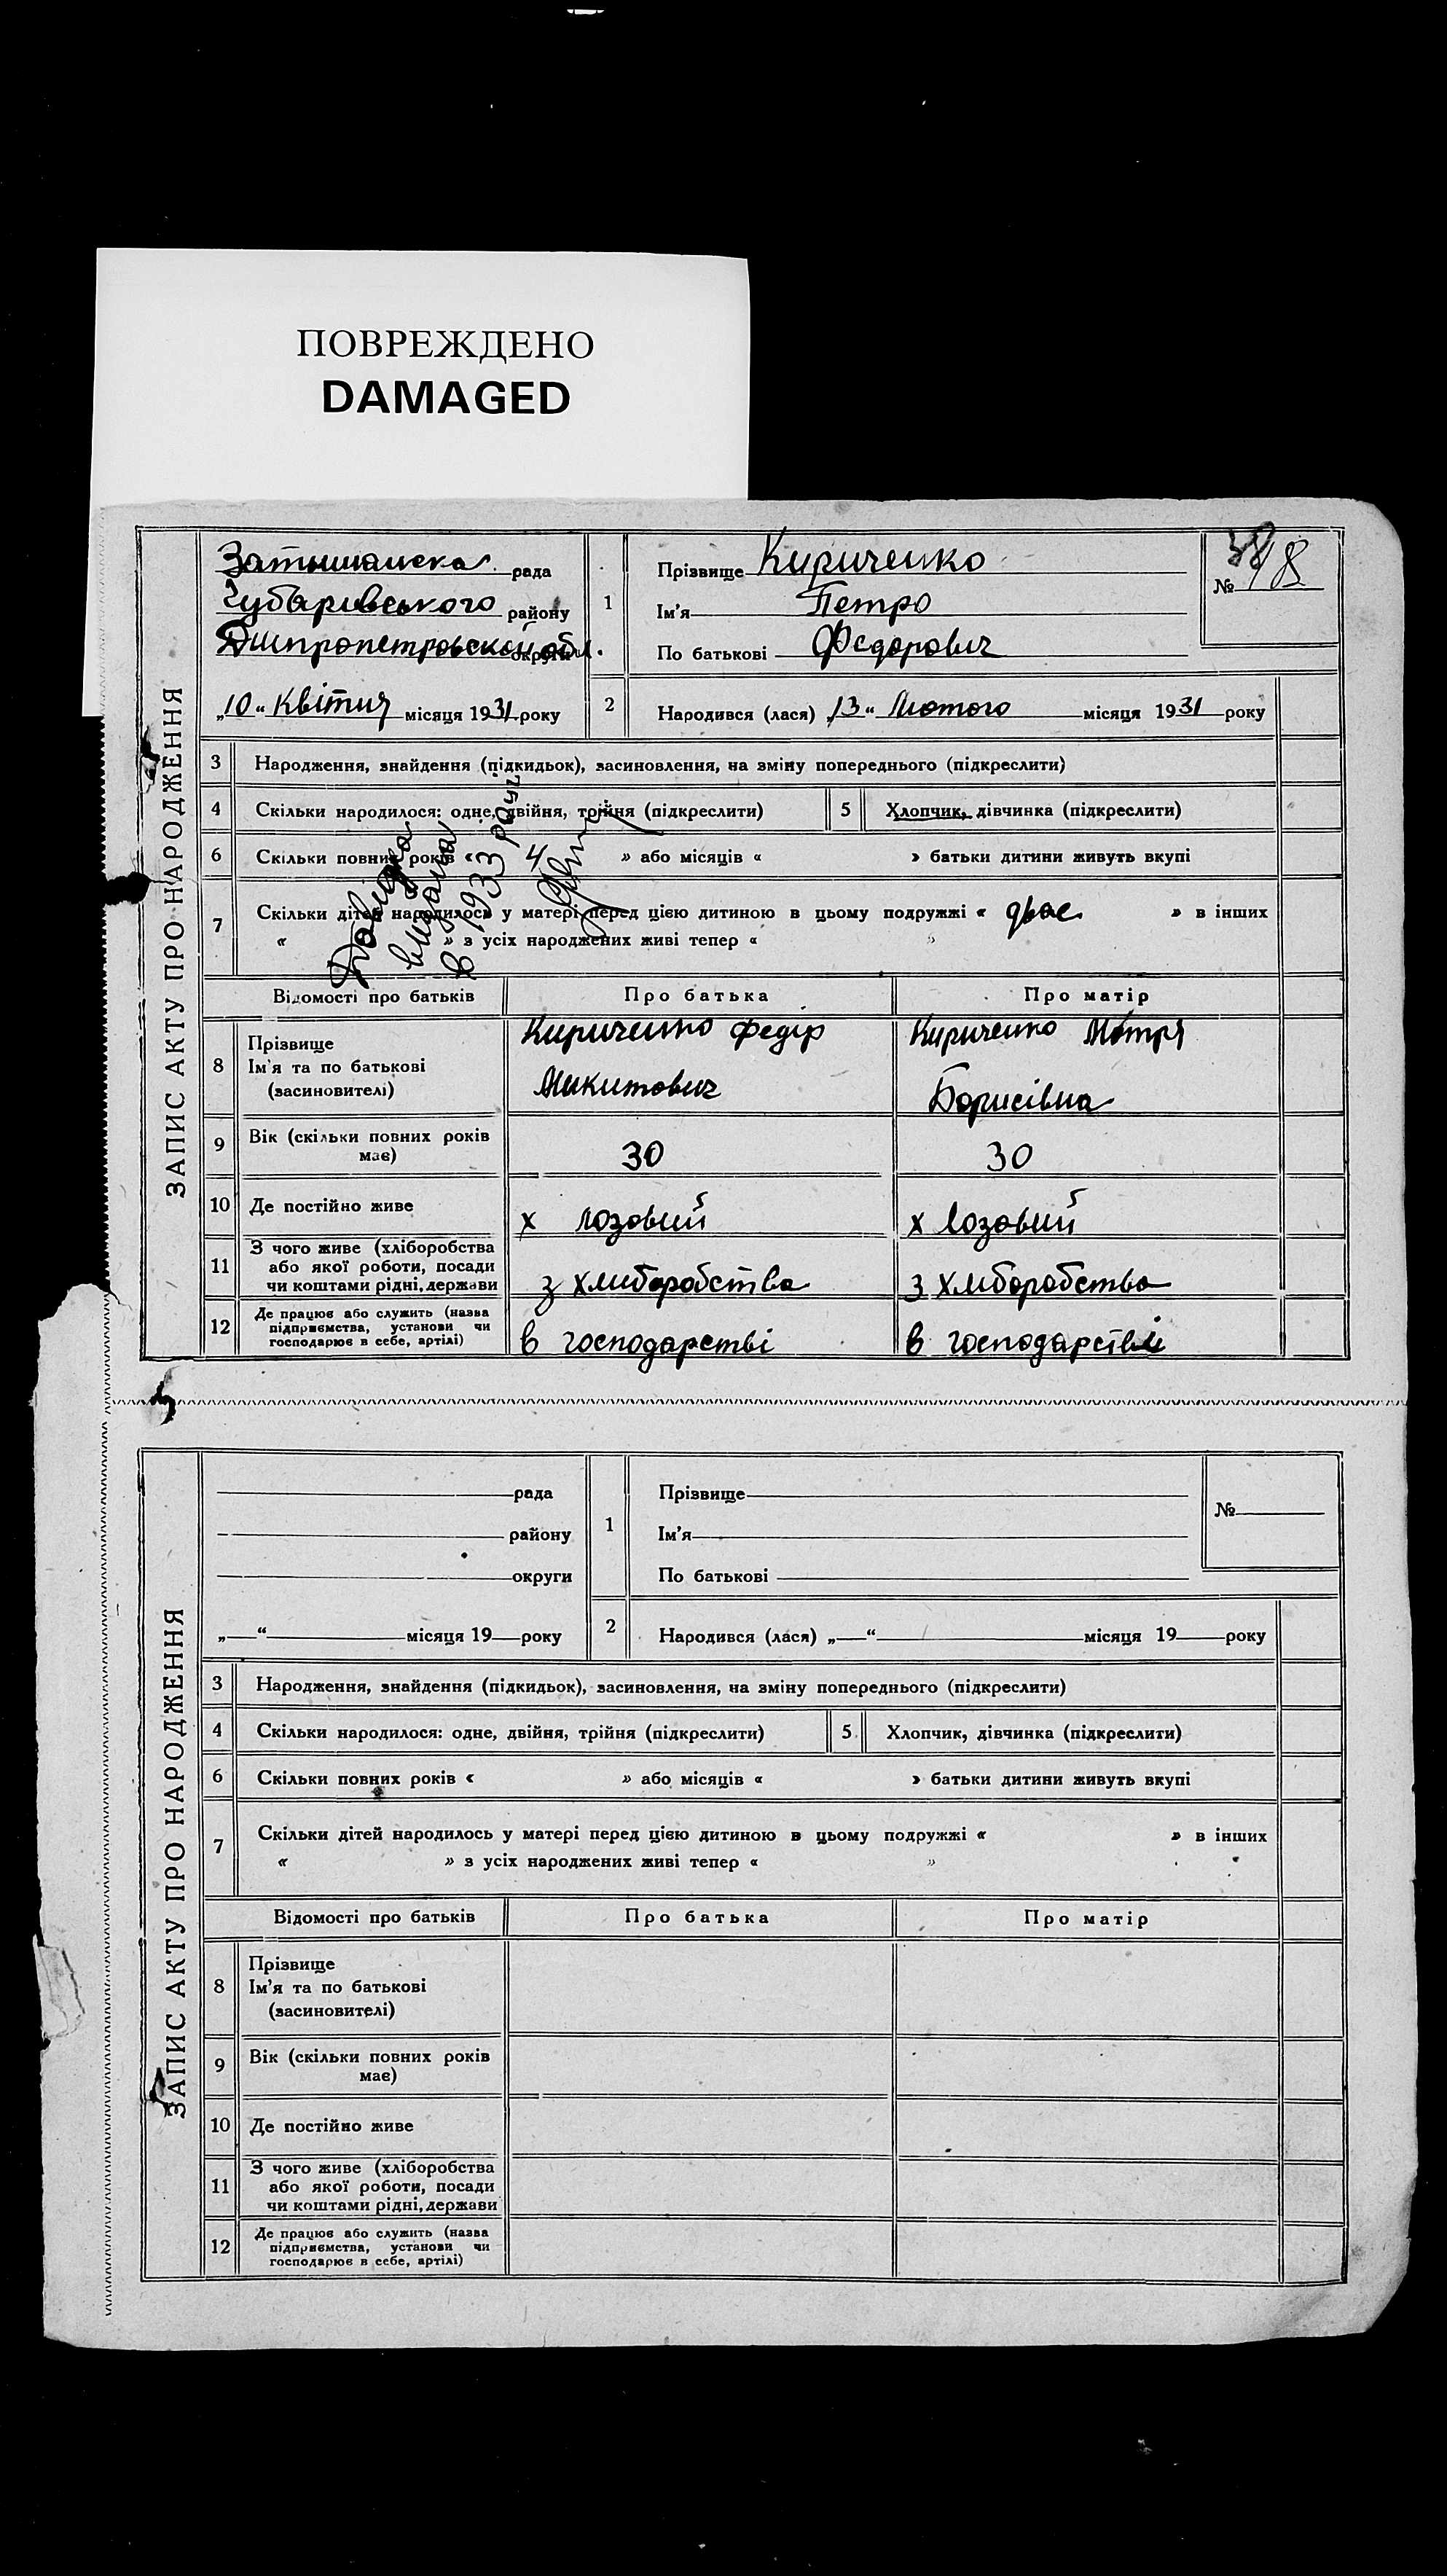 ПОВРЕЖДЕНО
DAMAGED
ЗАПИС АКТУ ПРО НАРОДЖЕННЯ
рада
Чубарівського району
Дніпропетровской обл. округи
„10“ Квітня місяця 1931 року
1
Прізвище Кириченко
Ім'я Петро
По батькові Федорович
№ 18
2
Народився (лася) „13“ Лютого місяця 1931 року
3 Народження, знайдення (підкидьок), засиновлення, на зміну попереднього (підкреслити)
4 Скільки народилося: одне, двійня, трійня (підкреслити) 5 Хлопчик, дівчинка (підкреслити)
6 Скільки повних років « 4 » або місяців « » батьки дитини живуть вкупі
7 Скільки дітей народилось у матері перед цією дитиною в цьому подружжі « двоє » в інших
« » з усіх народжених живі тепер « »
Довидка
видана
в 1933 році
Відомості про батьків Про батька Про матір
8 Прізвище
Ім'я та по батькові
(засиновителі)
Кириченко Федір
Микитович
Кириченко Мотря
Борисівна
9 Вік (скільки повних років
має)
30 30
10 Де постійно живе х лозовий х Лозовий
11 З чого живе (хліборобства
або якої роботи, посади
чи коштами рідні, держави
з хлиборобства з хлиборобства
12 Де працює або служить (назва
підприємства, установи чи
господарює в себе, артілі)
в господарстві в господарстві
ЗАПИС АКТУ ПРО НАРОДЖЕННЯ
рада
району
округи
„ “ місяця 19 року
1
Прізвище
Ім'я
По батькові
№
2
Народився (лася) „ “ місяця 19 року
3 Народження, знайдення (підкидьок), засиновлення, на зміну попереднього (підкреслити)
4 Скільки народилося: одне, двійня, трійня (підкреслити) 5 Хлопчик, дівчинка (підкреслити)
6 Скільки повних років « » або місяців « » батьки дитини живуть вкупі
7 Скільки дітей народилось у матері перед цією дитиною в цьому подружжі « » в інших
« » з усіх народжених живі тепер « »
Відомості про батьків Про батька Про матір
8 Прізвище
Ім'я та по батькові
(засиновителі)
9 Вік (скільки повних років
має)
10 Де постійно живе
11 З чого живе (хліборобства
або якої роботи, посади
чи коштами рідні, держави
12 Де працює або служить (назва
підприємства, установи чи
господарює в себе, артілі)